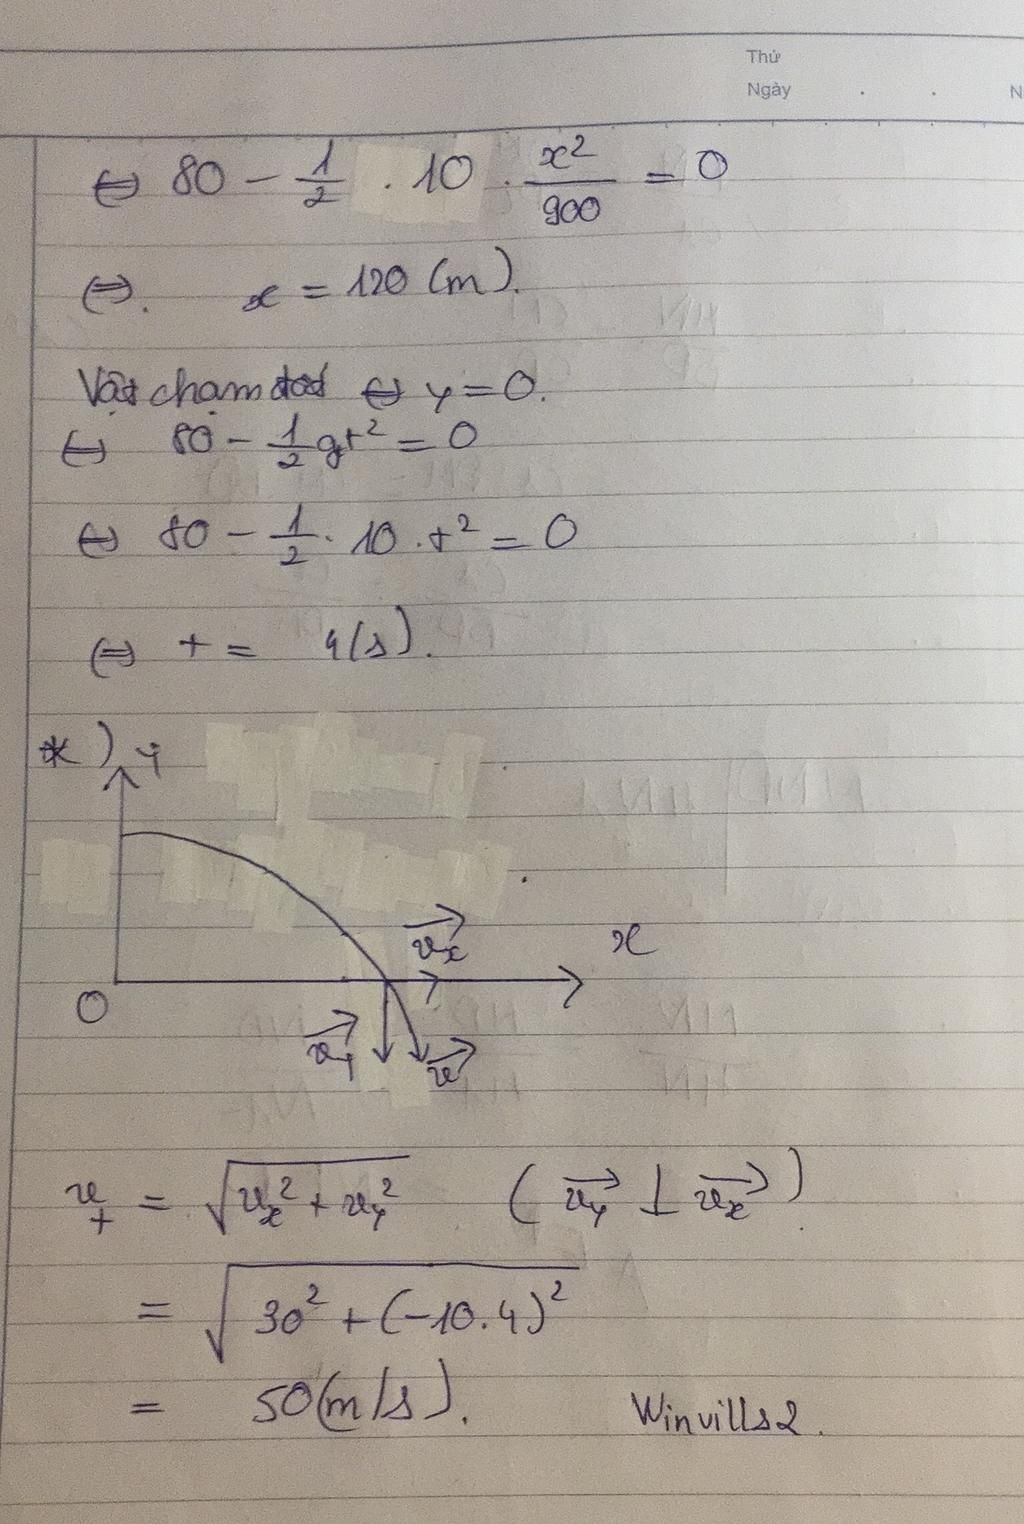 Thứ
Ngày . . N
⇔ 80 - 1/2 . 10 . x²/900 = 0
⇔. x = 120 (m).
Vật chạm đất ⇔ y = 0.
⇔ 80 - 1/2 gt² = 0
⇔ 80 - 1/2 . 10 . t² = 0
⇔ t = 4(s).
*) y
vx→ x
O
vy→ v→
vt = √(vx² + vy²) (vy→ ⊥ vx→)
= √(30² + (-10.4)²)
= 50(m/s).
Winvills2.